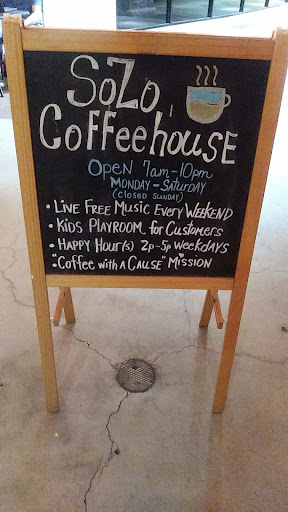 SoZo
CoffeehousE
OPEN 7am-10pm
MONDAY-SATURDAY
(closed SUNDAY)
• LIVE FREE MUSIC EVERY WEEKEND
• KIDS PLAYROOM for CUSTOMERS
• HAPPY HOUR(s) 2p-5p WEEKDAYS
• "COFFEE WITH A CAUSE" MISSION